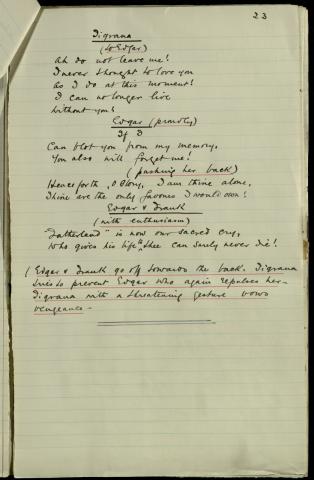 23
Tigrana
(to Edgar)
Ah do not leave me!
I never thought to love you
As I do at this moment!
I can no longer live
without you!
Edgar (proudly)
If I
Can blot you from my memory,
You also will forget me!
(pushing her back)
Henceforth, O Glory, I am thine alone,
Thine are the only favours I would own!
Edgar & Frank
(with enthusiasm)
"Fatherland" is now our sacred cry,
Who gives his life to thee can surely never die!
(Edgar & Frank go off towards the back. Tigrana
tries to prevent Edgar who again repulses her -
Tigrana with a threatening gesture vows
vengeance -